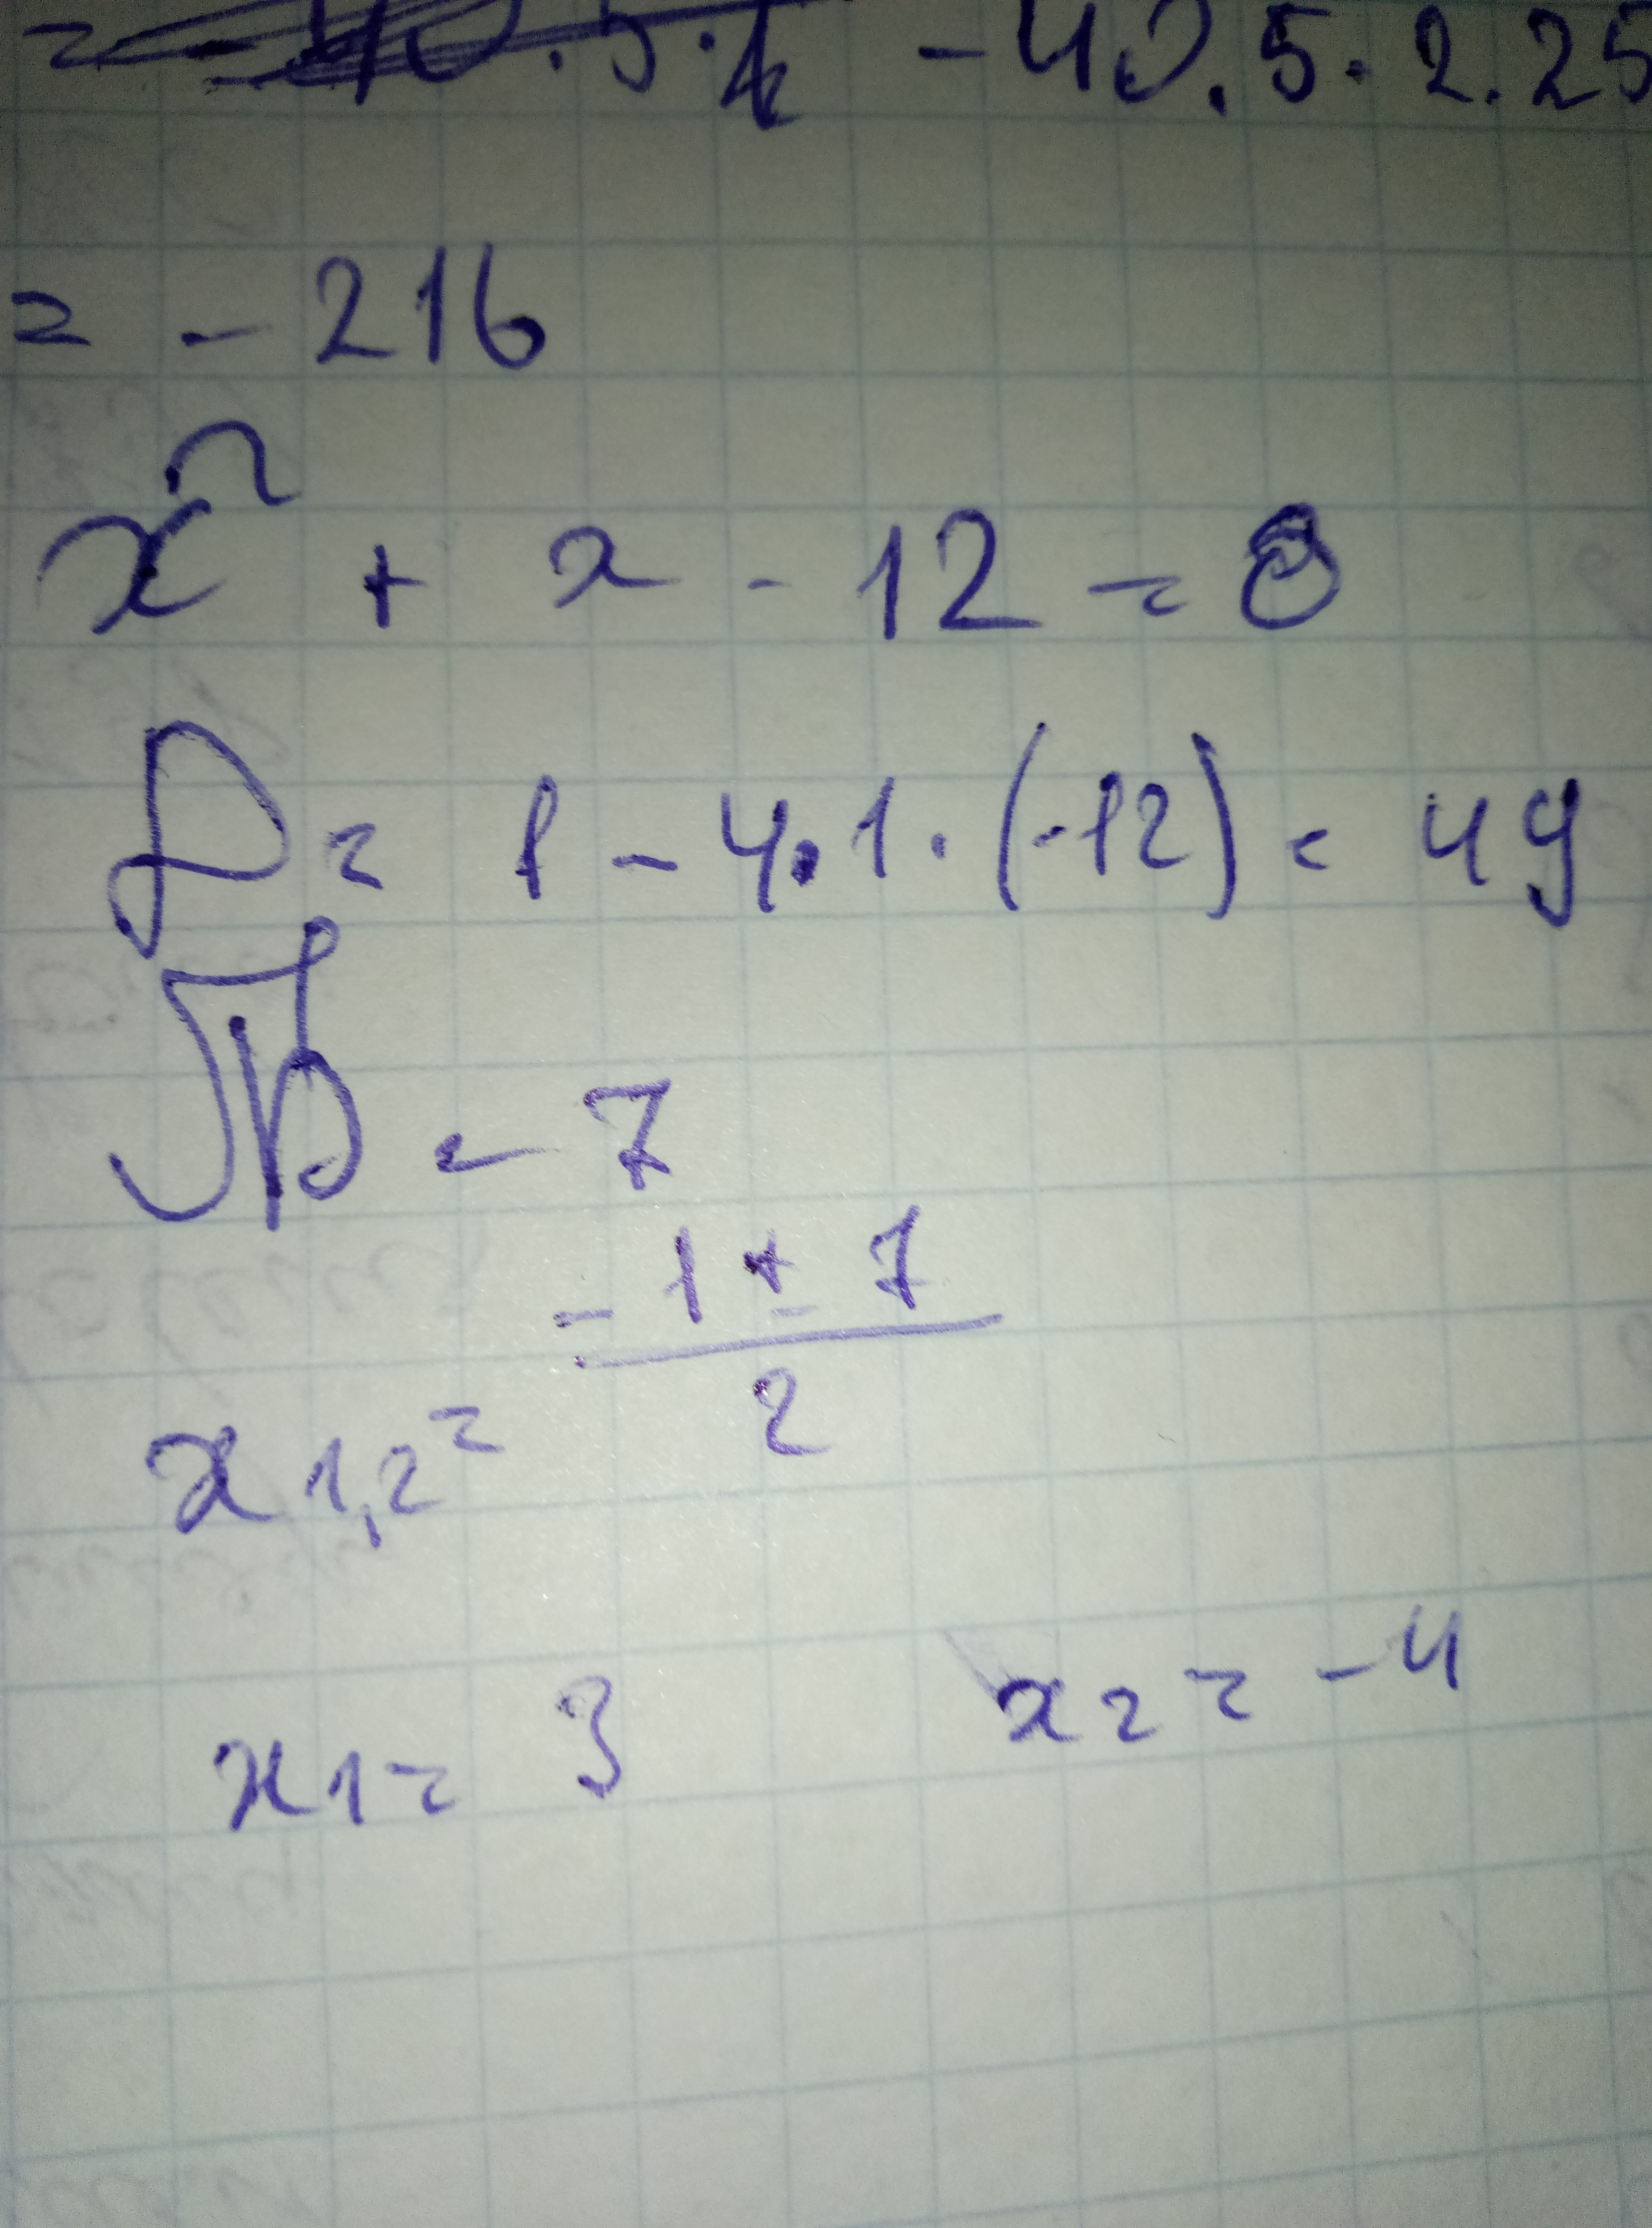 - 40 . 5 . 2 . 25
= - 216
x² + x - 12 = 0
D = 1 - 4 · 1 · (-12) = 49
√D = 7
x1,2 = (-1 ± 7) / 2
x1 = 3 x2 = -4